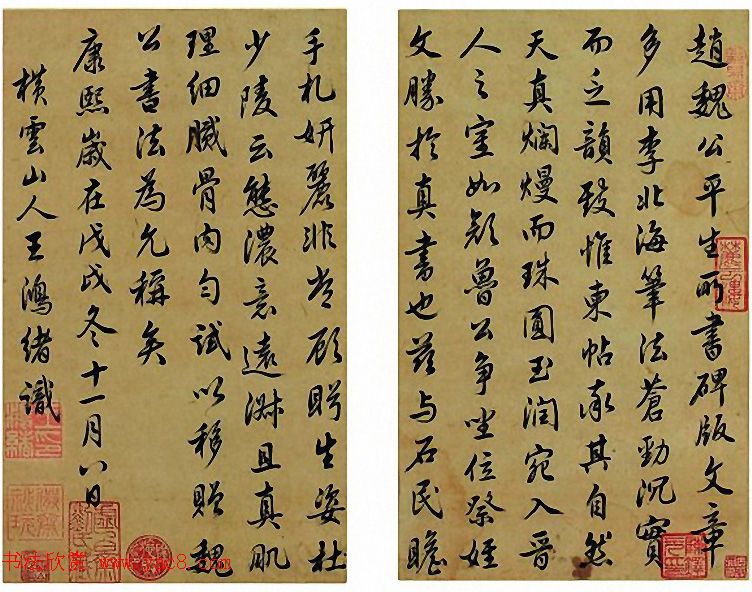 趙魏公平生所書碑版文章
多用李北海筆法蒼勁沉實
而乏韻致惟柬帖承其自然
天真爛熳而珠圓玉潤宛入晉
人之室如顏魯公爭坐位祭姪
文勝於真書也茲与石民瞻
手札妍麗非常顧盻生姿杜
少陵云態濃意遠淋且真肌
理細膩骨肉勻試以移贈魏
公書法為允稱矣
康熙歲在戊戌冬十一月八日
橫雲山人王鴻緒識
书法欣赏 www.yac8.com